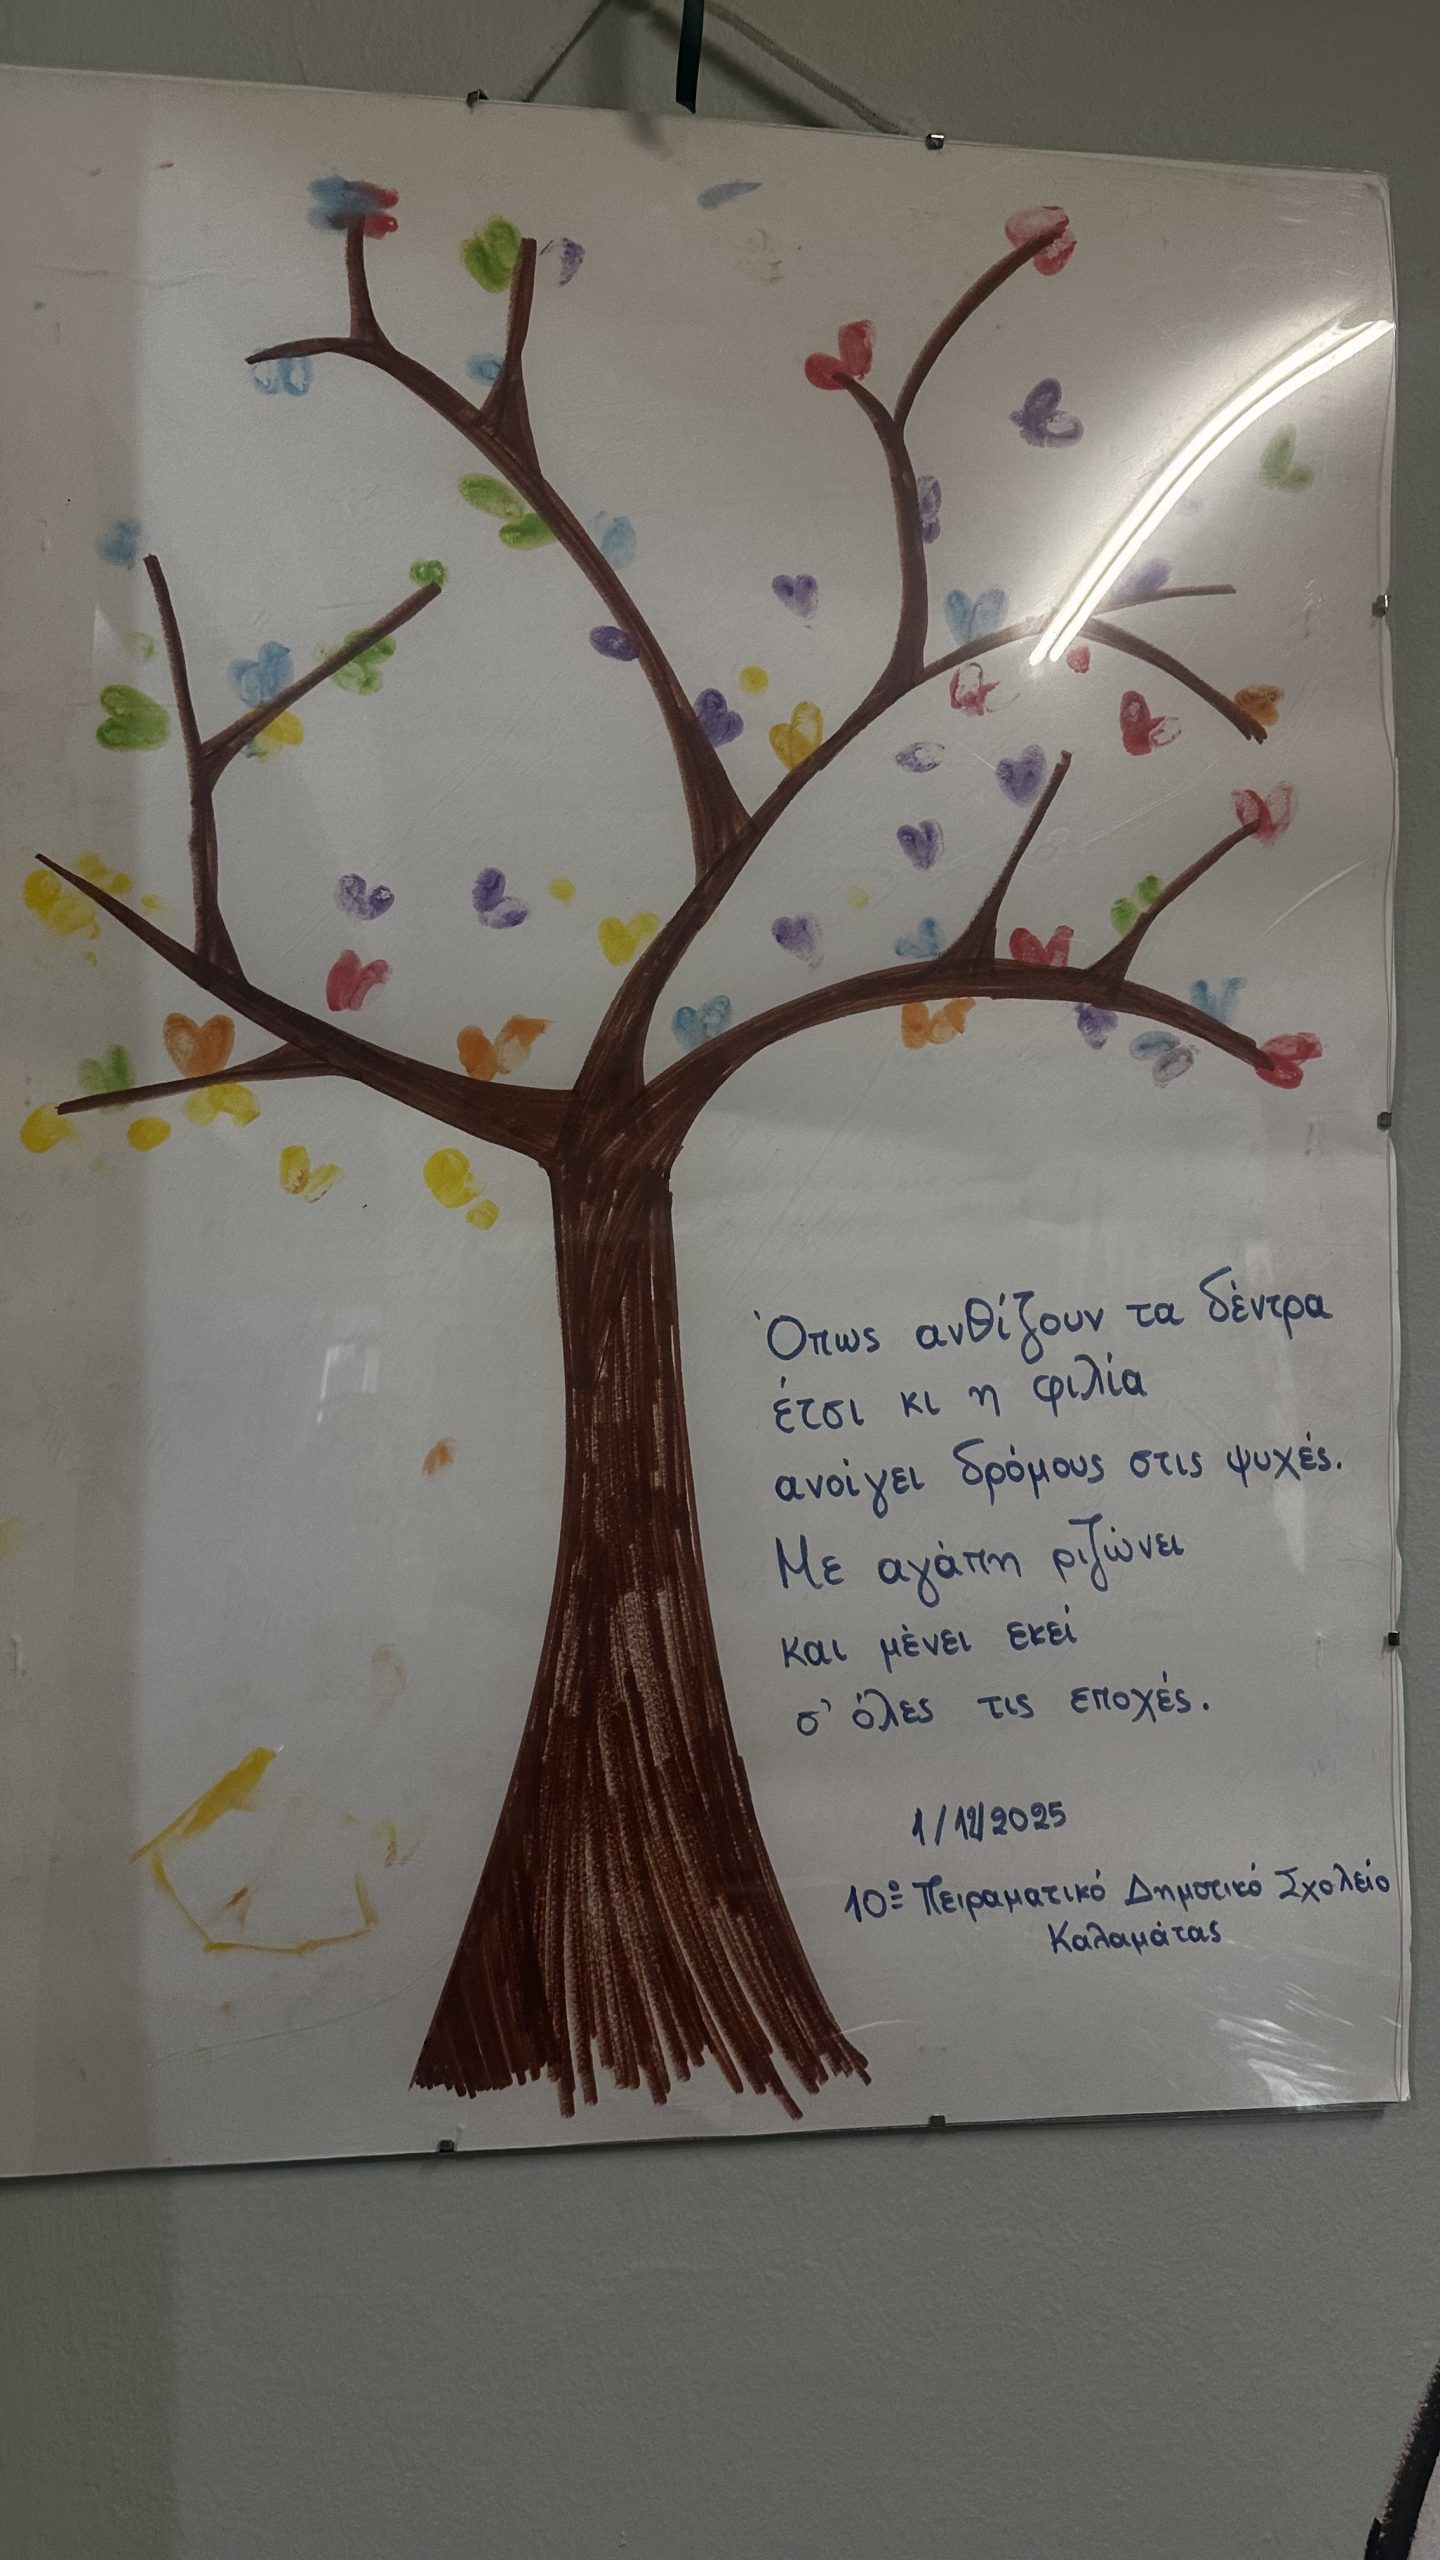 Όπως ανθίζουν τα δέντρα
έτσι κι η φιλία
ανοίγει δρόμους στις ψυχές.
Με αγάπη ριζώνει
και μένει εκεί
σ' όλες τις εποχές.
1/12/2025
10ο Πειραματικό Δημοτικό Σχολείο
Καλαμάτας